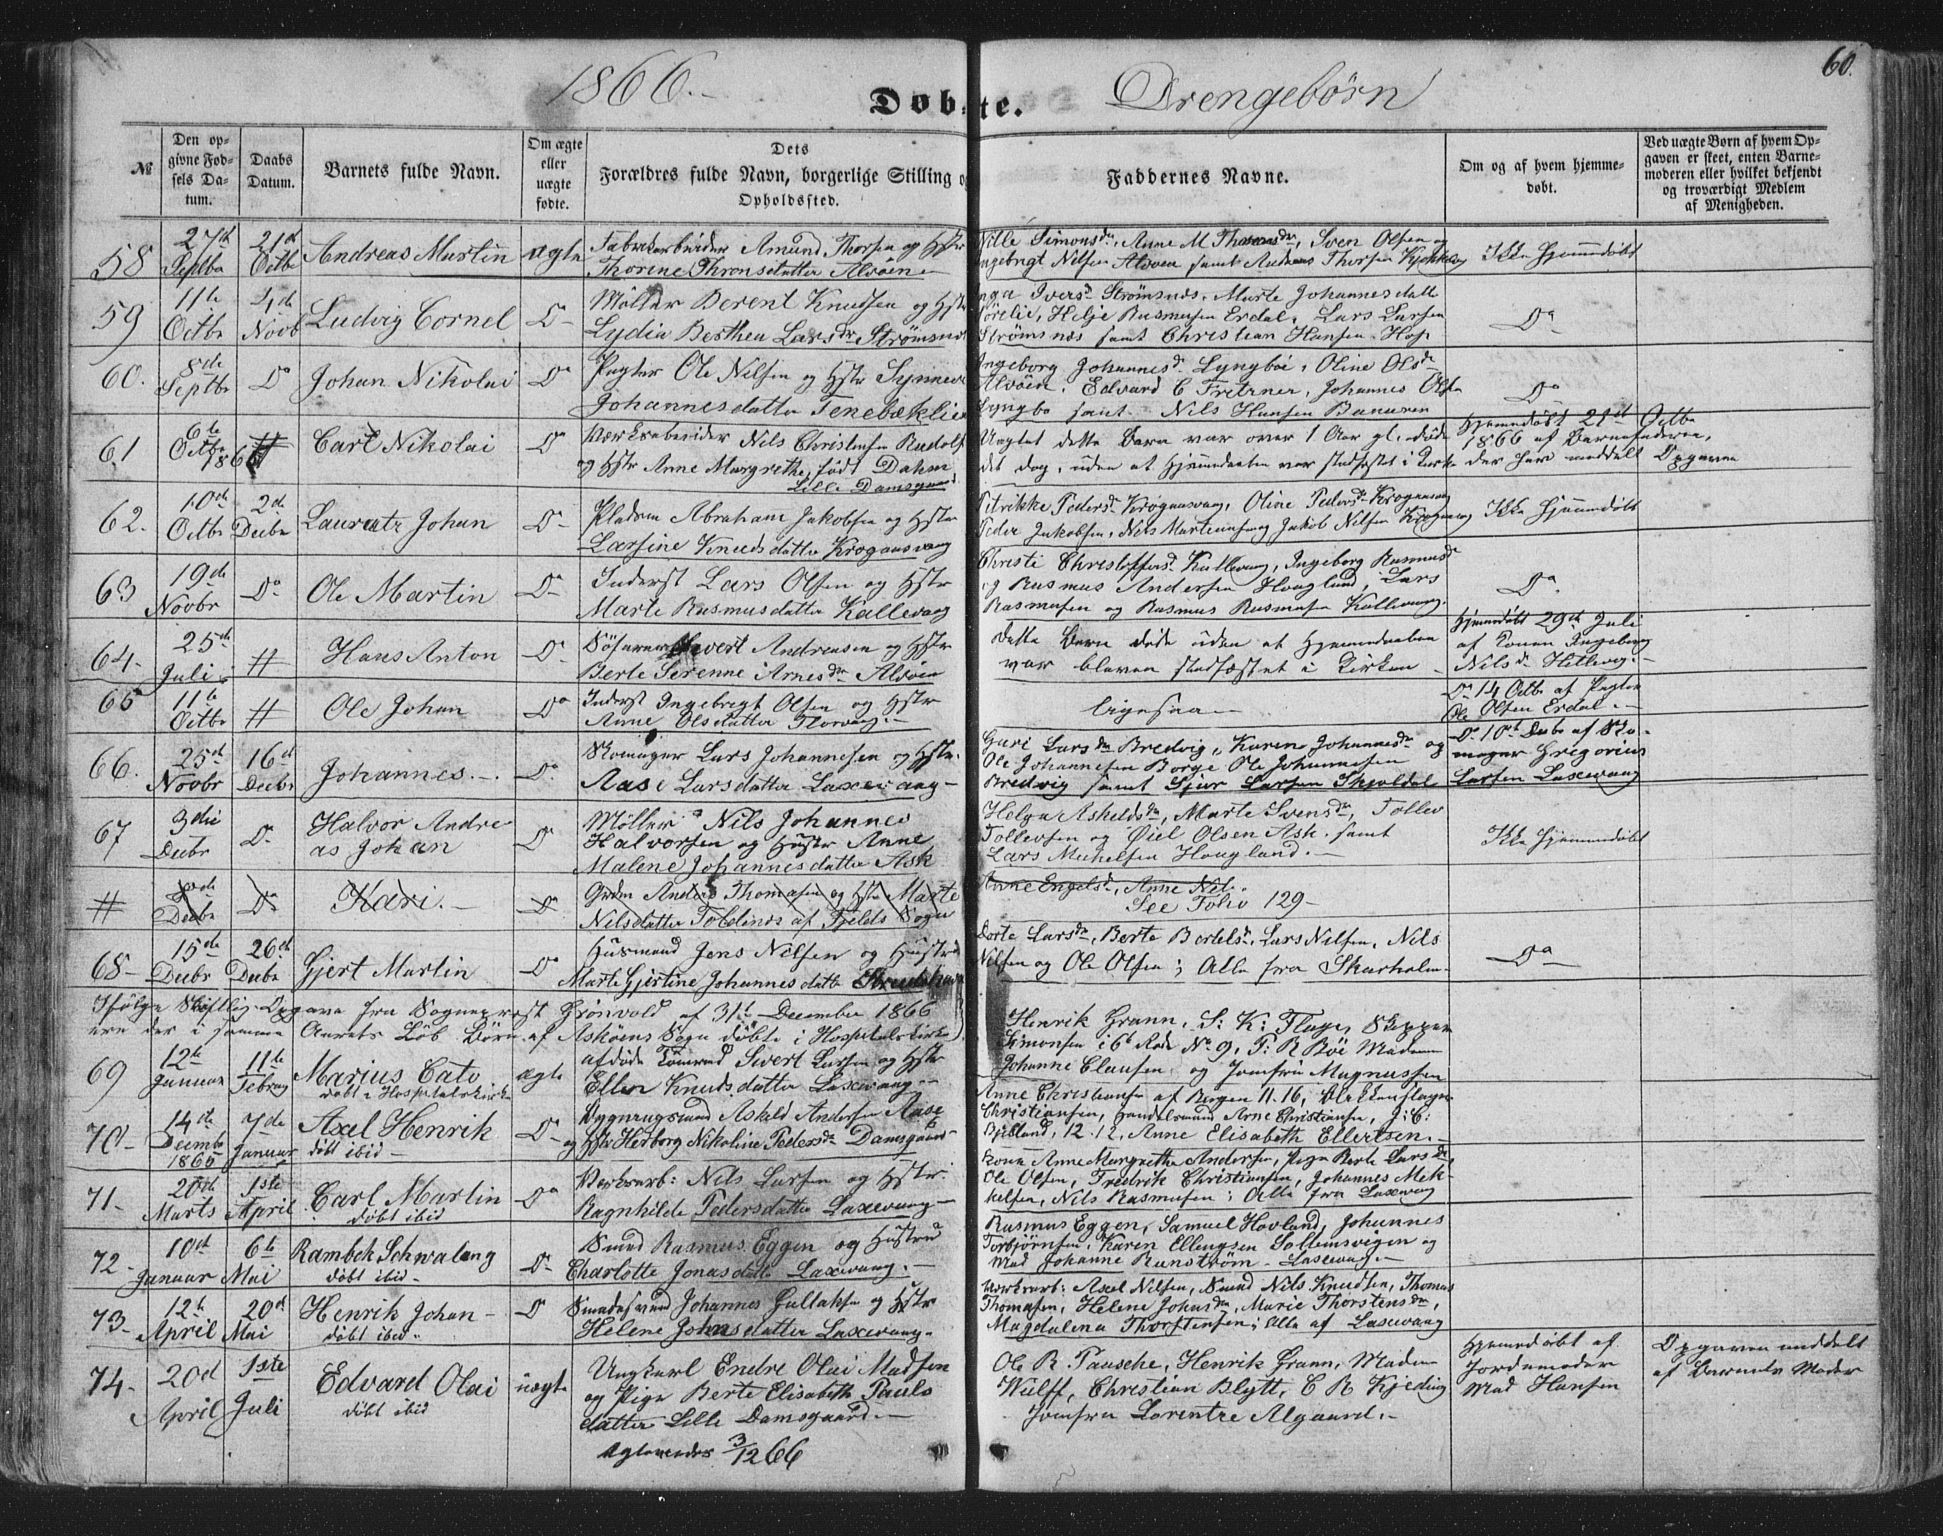 1866.- Døbte. Drengebørn 60.
№
Den opgivne Fødsels Datum.
Daabs Datum.
Barnets fulde Navn.
Om ægte eller uægte fødte.
Dets Forældres fulde Navn, borgerlige Stilling og Opholdssted.
Faddernes Navne.
Om og af hvem hjemmedøbt.
Ved uægte Børn af hvem Opgaven er skeet, enten Barnemoderen eller hvilket bekjendt og troværdigt Medlem af Menigheden.
58 27de Septbr 21de Octbr Andreas Martin ægte
Fabrikarbeider Amund Thorsen og Hstr
Thorine Thronsdatter Alvøen
Nille Simonsdr, Anne M Thomasdr, Sven Olsen og
Ingebrigt Nilsen Alvøen samt Andreas Thorsen
Ikke hjemmedøbt
59 11te Octbr 4de Novb Ludvig Cornel Do
Møller Berent Knudsen og Hstr
Lydia Berthea Larsdr Strømsnes
Inga Iversdr Strømsnes, Marte Johannesdatter
Helje Rasmusen Erdal, Lars Larsen
Strømsnæs samt Christian Hansen Hop
Do
60. 8de Septbr Do Johan Nikolai Do
Pagter Ole Nilsen og Hstr Synneve
Johannesdatter Tenebæklien
Ingeborg Johannesdr Lyngbøe, Oline Olsdr
Alvøen. Edvard C Fretrner, Johannes Olsen
Lyngbø samt Nils Hansen Banuren
Do
61 6te Octbr 1866 # Carl Nikolai Do
Værksarbeider Nils Christensen Rudolf
og Hstr Anne Margrethe, født Dahm
Lille Damsgaard
Uagtet dette Barn var over 1 Aar gl. døde
det dog, uden at hjemmedaaben var stadfæstet i Kirke
Hjemmedøbt 21de Octbr
1866 af Barnefaderen,
der har meddelt Opgaven
62. 10de Octbr 2de Decbr Lauratz Johan Do
Pladsm Abraham Jakobsen og Hstr
Larsine Knudsdatter Krogaasvaag
Petrikke Pedersdr Krogaasvaag, Oline Pedersdr Krogaasvaag
Peder Jakobsen, Nils Martinusen og Jakob Nilsen
Ikke hjemmedøbt
63 19de Novbr Do Ole Martin Do
Inderst Lars Olsen og Hstr
Marte Rasmusdatter Kallevaag
Christi Christoffersdr Kallevaag, Ingeborg Rasmusdr
og Rasmus Andersen Hougland, Lars
Rasmusen og Rasmus Rasmusen Kallevaag.
Do
64- 25de Juli # Hans Anton Do
Søfarer Sivert Andreasen og Hstr
Berte Serenne Arnesdr Alvøen
Dette Barn døde uden at Hjemmedaaben
var bleven stadfæstet i Kirken
Hjemmedøbt 29de Juli
af Konen Ingeborg
Nilsdr Hetlevig.-
65 11te Octbr # Ole Johan Do
Inderst Ingebregt Olsen og Hstr
Anne Olsdatter Florvaag.-
ligesaa
Do 14 Octbr af Pagter
Ole Olsen Erdal.-
66. 25de Novbr 16de Decbr Johannes.- Do
Skomager Lars Johannesen og Hstr.
Aase Larsdatter Laxevaag-
Guri Larsdr Bredvig, Karen Johannesdr og
Ole Johannesen Borge Ole Johannesen
Bredvig samt Sjur Larsen Skjoldal
Do 10de Decbr af Skomager Gregorius
Larsen Laxevaag
67 3die Decbr Do Halvor Andre
as Johan Do
Møller Nils Johannes
Halvorsen og Hustr Anne
Malene Johannesdatter Ask
Helga Askeldsdr, Marte Svensdr, Tollev
Tollevsen og Øiel Olsen Ask. samt
Lars Michelsen Hougland.-
Ikke hjemmedøbt
# Decbr Do Kari.- Do
Grdm Anders Thomasen og Hstr Marte
Nilsdatter Toldnes af Fjelds Sogn
Anne Engelsdr, Anne Nils.
See Folio 129-
68- 15de Decbr 26de Decbr Gjert Martin Do
Husmand Jens Nilsen og Hustru
Marte Gjertine Johannesdatter
Dorte Larsdr, Berte Bertelsdr, Lars Nilsen, Nils
Nilsen og Ole Olsen; Alle fra Skarholm-
Do
Ifølge Skriftlig Opgave fra Sognepræst Grønvold af 31te December 1866
ere der i samme Aarets Løb Børn af Askøens Sogn døbte i Hospitalskirken
69 12te Januar 11te Febuar Marius Cato
døbt i Hospitalskirken ægte
afdøde Tømmd Sivert Larsen og Hstr
Ellen Knudsdatter Laxevaag-
Henrik Grann, S: K: Flage, Skipper
Simonsen i 6te Rode No 9, T: R Bøe Madam
Johanne Clausen og Jomfru Magnussen
70- 14de Decembr 1865 7de Januar Axel Henrik
døbt ibid- Do
Bygningsmand Askeld Andersen Aase
og Hstr Herborg Nikoline Pedersdr Damsgaard
Anne Christiansen af Bergen 11.16,
Christiansen, Handelsmand Arne Christiansen, J: C:
Bjelland, 12.12, Anne Elisabeth Ellertsen.-
71- 20de Marts 1ste April Carl Martin
døbt ibid Do
Værksarb: Nils Larsen og Hstr.
Ragnhilde Pedersdatter Laxevaag-
Kone Anne Margrethe Andersen, Pige Berte Larsdr,
Ole Olsen, Fredrik Christiansen, Johannes Mik-
kelsen, Nils Rasmusen; Alle fra Laxevaag
72- 10de Januar 6te Mai Rambek Schwaleng
døbt ibid- Do
Smed Rasmus Eggen og Hustru
Charlotte Jonasdatter Laxevaag.-
Rasmus Eggen, Samuel Hovland, Johannes
Torbjørnsen, Karen Ellengsen Solhemsvigen og
Mad Johanne Runstrøm- Laxevaag-
73- 12te April 20de Mai Henrik Johan-
døbt ibid- Do
Smedesvend Johannes Gullaksen og Hstr
Helene Johnsdatter Laxevaag.
Værksarb: Axel Nilsen, Smed Nils Knudsen, Thomas
Thomasen, Helene Johnsdr, Marie Thorstensdr,
Magdalena Thorstensen; Alle af Laxevaag
74- 20d April 1ste Juli Edvard Olai
døbt ibid uægte
Ungkarl Endre Olai Madsen
og Pige Berte Elisabeth Pauls
datter Lille Damsgaard.-
Ægteviedes 3/12 66
Ole R. Pausche, Henrik Grann, Madm
Wulff, Christian Blytt, C R Kjeding
Jomfru Lorentze Algaard.-
Hjemmedøbt af
Jordemoder
Mad Hansen
Opgaven meddelt
af Barnets Moder